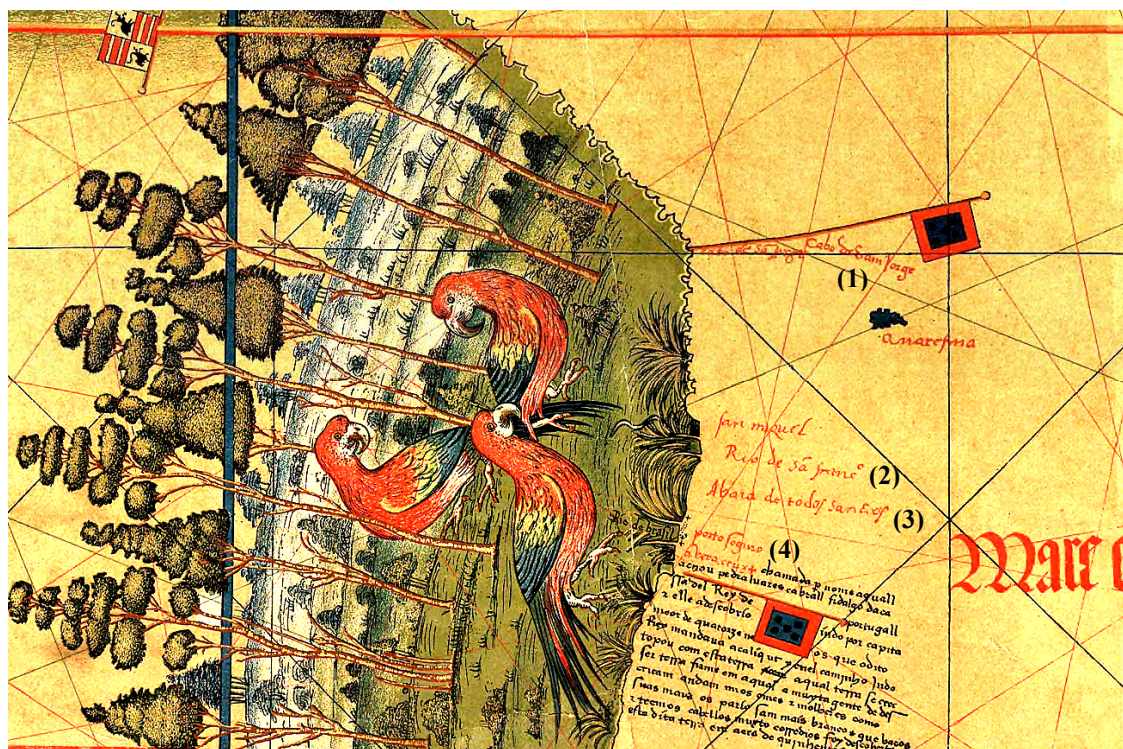 Cabo de Sam Jorge
(1)
quaresma
san miguel
Rio de sã franco (2)
Abaia de todos sanctos (3)
porto seguro (4)
Mare
a vera cruz + chamada p nome aquall
achou pedraluares cabrall fidalgo da ca
ssa del Rey de portugall
z elle a descobrio indo por capita
moor de quatorze n os que o dito
Rey mandaua a caliqut y enel caminho indo
topou com esta terra aqual terra se cree
ser terra firme em aqual a muyta gente de des
criçam andam nuos omes z molheres como
suas mais os pario sam mais brancos que bacos
z teemos cabellos muyto corredios foy descober
esta dita terra em aera de quinhen